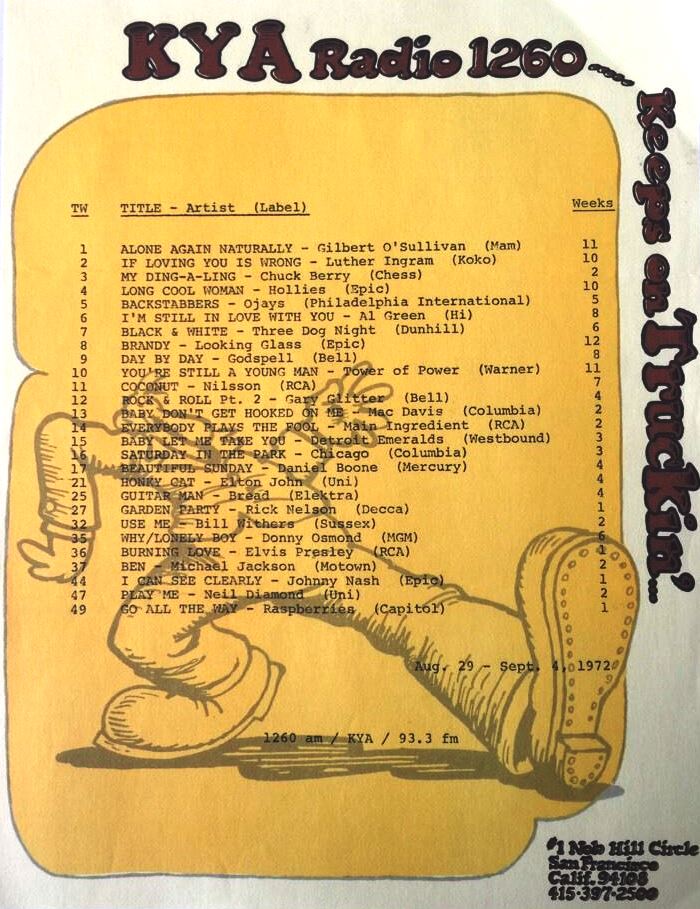 KYA Radio 1260.....
Keeps on Truckin'...
TW TITLE - Artist (Label) Weeks
1 ALONE AGAIN NATURALLY - Gilbert O'Sullivan (Mam) 11
2 IF LOVING YOU IS WRONG - Luther Ingram (Koko) 10
3 MY DING-A-LING - Chuck Berry (Chess) 2
4 LONG COOL WOMAN - Hollies (Epic) 10
5 BACKSTABBERS - Ojays (Philadelphia International) 5
6 I'M STILL IN LOVE WITH YOU - Al Green (Hi) 8
7 BLACK & WHITE - Three Dog Night (Dunhill) 6
8 BRANDY - Looking Glass (Epic) 12
9 DAY BY DAY - Godspell (Bell) 8
10 YOU'RE STILL A YOUNG MAN - Tower of Power (Warner) 11
11 COCONUT - Nilsson (RCA) 7
12 ROCK & ROLL Pt. 2 - Gary Glitter (Bell) 4
13 BABY DON'T GET HOOKED ON ME - Mac Davis (Columbia) 2
14 EVERYBODY PLAYS THE FOOL - Main Ingredient (RCA) 2
15 BABY LET ME TAKE YOU - Detroit Emeralds (Westbound) 3
16 SATURDAY IN THE PARK - Chicago (Columbia) 3
17 BEAUTIFUL SUNDAY - Daniel Boone (Mercury) 4
21 HONKY CAT - Elton John (Uni) 4
25 GUITAR MAN - Bread (Elektra) 4
27 GARDEN PARTY - Rick Nelson (Decca) 1
32 USE ME - Bill Withers (Sussex) 2
35 WHY/LONELY BOY - Donny Osmond (MGM) 6
36 BURNING LOVE - Elvis Presley (RCA) 1
37 BEN - Michael Jackson (Motown) 2
44 I CAN SEE CLEARLY - Johnny Nash (Epic) 1
47 PLAY ME - Neil Diamond (Uni) 2
49 GO ALL THE WAY - Raspberries (Capitol) 1
Aug. 29 - Sept. 4, 1972
1260 am / KYA / 93.3 fm
#1 Nob Hill Circle
San Francisco
Calif. 94108
415-397-2500